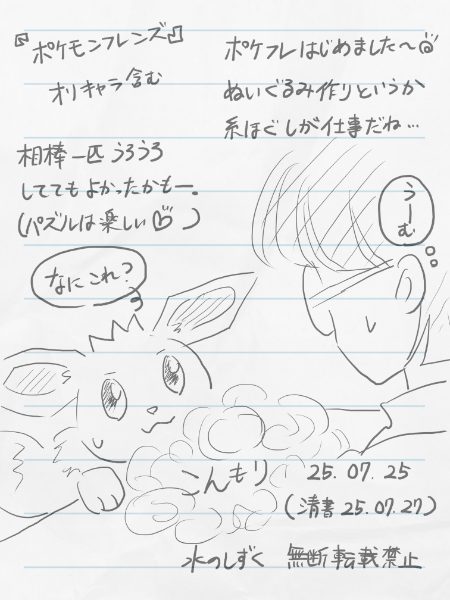 『ポケモンフレンズ』
オリキャラ含む
ポケフレはじめました〜
ぬいぐるみ作りというか
糸ほぐしが仕事だね…
相棒一匹うろうろ
しててもよかったかもー。
(パズルは楽しい♡)
うーむ
なにこれ?
こんもり
25.07.25
(清書25.07.27)
水のしずく 無断転載禁止